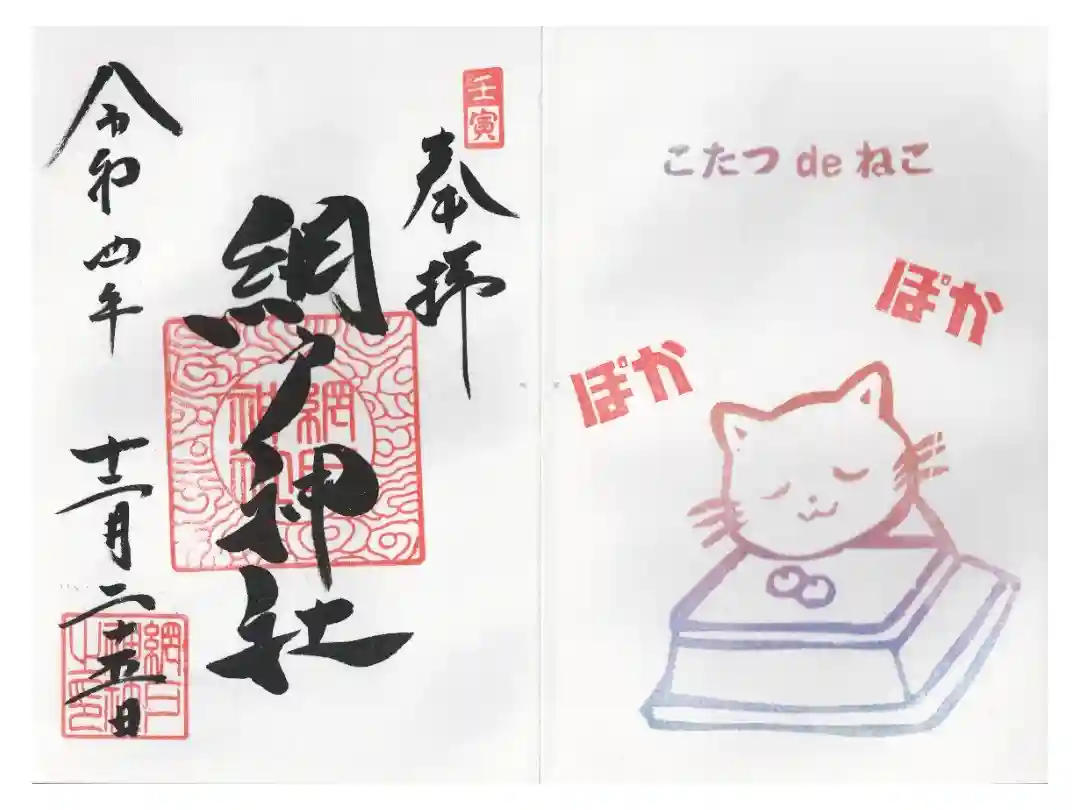 壬寅
奉拝
網戸神社
網戸神社
令和四年 十二月二十五日
網戸神社之印
こたつ de ねこ
ぽか
ぽか